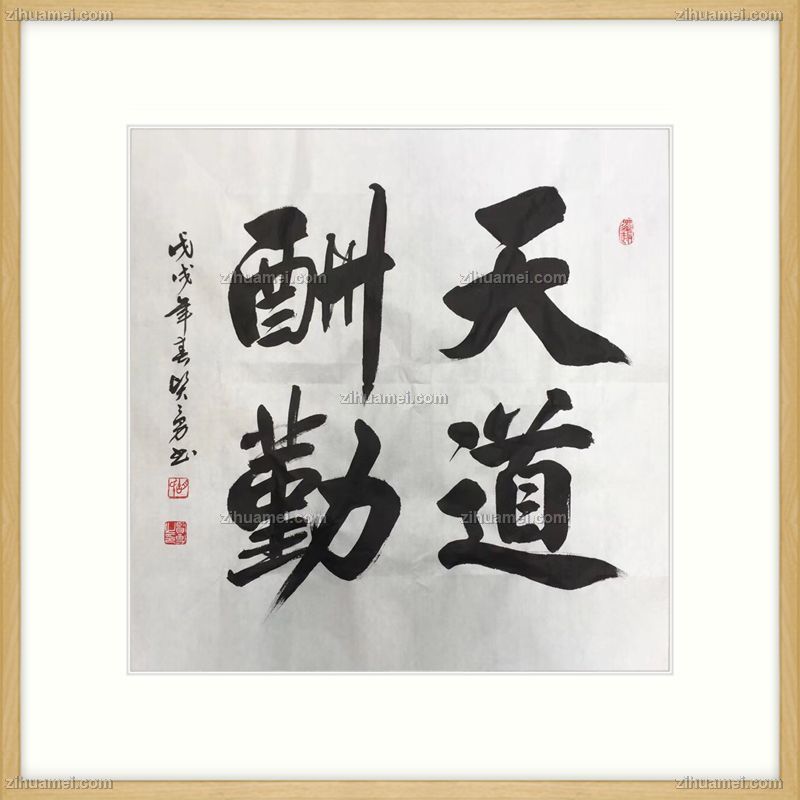 天道
酬勤
戊戌年春贤勇书
zihuamei.com
zihuamei.com
zihuamei.com
zihuamei.com
zihuamei.com
zihuamei.com
zihuamei.com
zihuamei.com
zihuamei.com